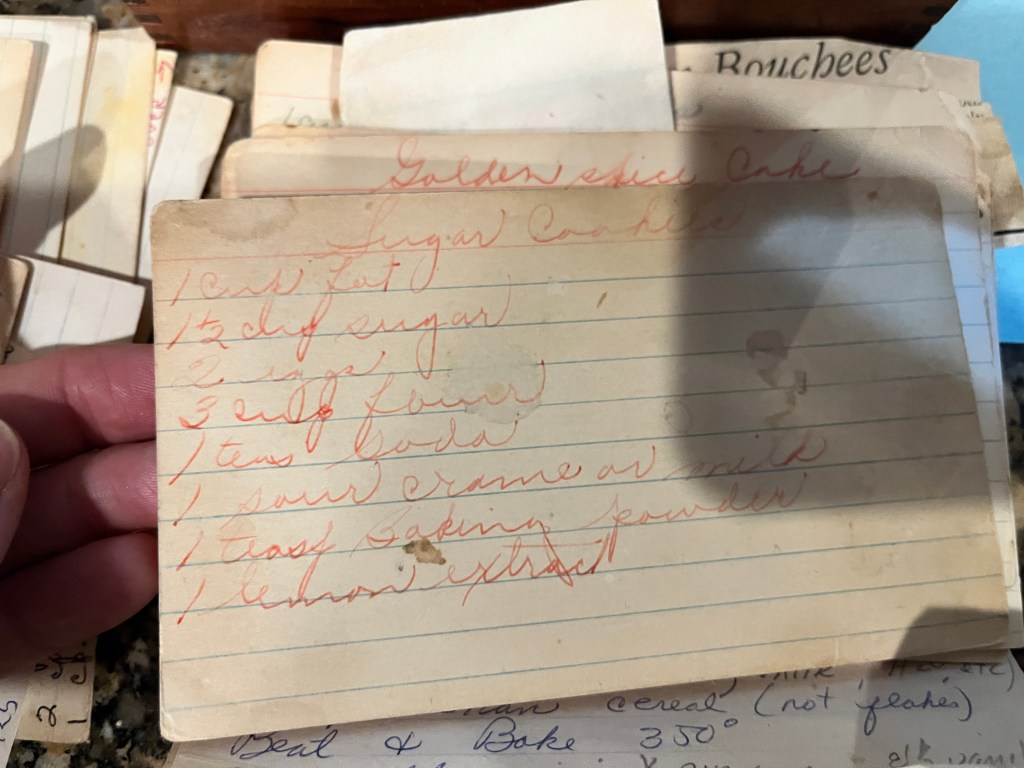 Bouchees
OVER
Golden spice Cake
Sugar Cookies
1 cup fat
1 1/2 cup sugar
2 eggs
3 cup flour
1 teas Soda
1 sour crame or milk
1 teasp Baking powder
1 lemon extract
cereal (not flakes)
Beat & Bake 350°
2
1